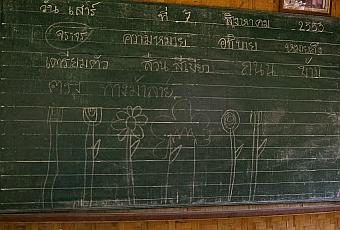 วัน เสาร์ ที่ 7 สิงหาคม 2553
จราจร ความหมาย อธิบาย หมายถึง
เตรียมตัว ส่วน สีเขียว ถนน ข้าม
ครู ทางม้าลาย